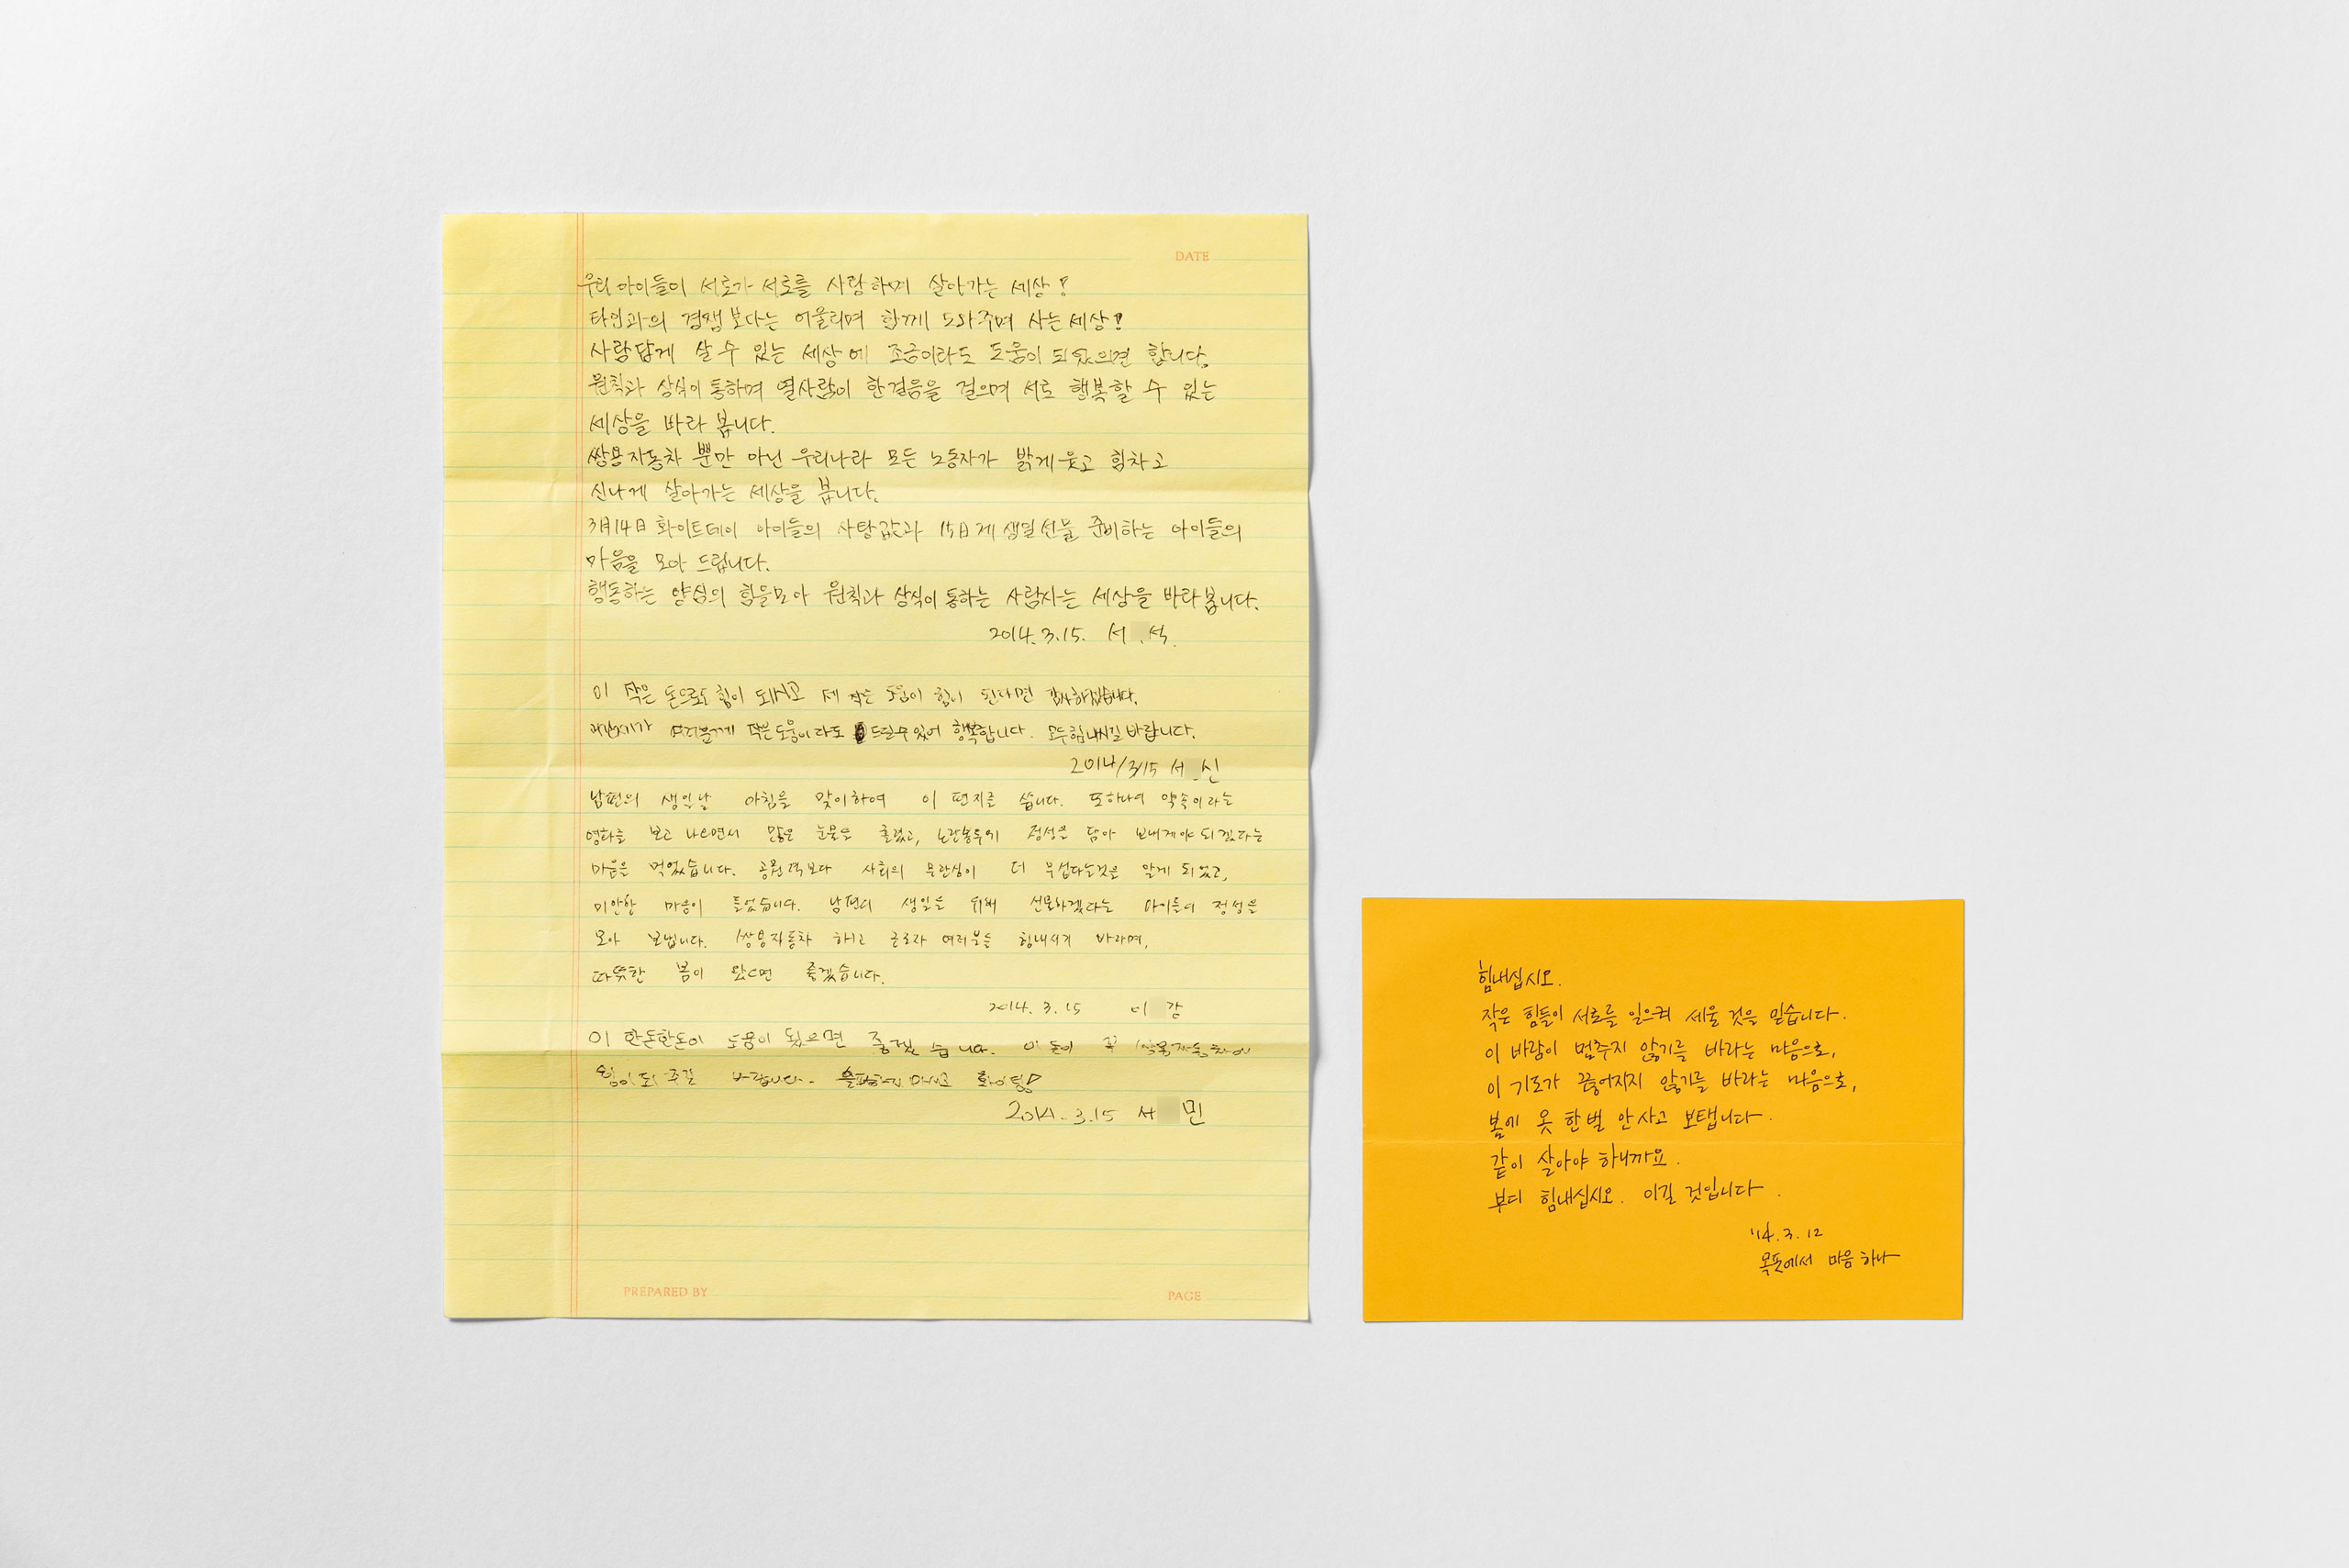 DATE
우리 아이들이 서로가 서로를 사랑하며 살아가는 세상!
타인과의 경쟁보다는 어울리며 함께 도와주며 사는 세상!
사람답게 살 수 있는 세상에 조금이라도 도움이 되었으면 합니다.
원칙과 상식이 통하며 열사람이 한걸음을 걸으며 서로 행복할 수 있는
세상을 바라 봅니다.
쌍용자동차 뿐만 아닌 우리나라 모든 노동자가 밝게 웃고 힘차고
신나게 살아가는 세상을 봅니다.
3月14日 화이트데이 아이들의 사탕값과 15日 제 생일선물 준비하는 아이들의
마음을 모아 드립니다.
행동하는 양심의 힘을모아 원칙과 상식이 통하는 사람사는 세상을 바라봅니다.
2014. 3. 15. 서 석
이 작은 돈으로도 힘이 되시고 제 작은 도움이 힘이 된다면 감사하겠습니다.
여러분께 작은도움이라도 드릴수있어 행복합니다. 모두힘내시길바랍니다.
2014/3/15 서 신
남편의 생일날 아침을 맞이하여 이 편지를 씁니다. 또하나의 약속이라는
영화를 보고 나오면서 많은 눈물을 흘렸고, 노란봉투에 정성을 담아 보내게야 되겠다는
마음을 먹었습니다. 공권력보다 사회의 무관심이 더 무섭다는것을 알게 되었고,
미안한 마음이 들었습니다. 남편의 생일을 위해 선물하겠다는 아이들의 정성을
모아 보냅니다. 쌍용자동차 해고 근로자 여러분들 힘내시기 바라며,
따뜻한 봄이 왔으면 좋겠습니다.
2014. 3. 15 이 강
이 한돈한돈이 도움이 됐으면 좋겠습니다. 이 돈이 꼭 쌍용자동차에
힘이 되 주길 바랍니다. 슬퍼하지 마시고 화이팅!
2014. 3. 15 서 민
PREPARED BY
PAGE
힘내십시오.
작은 힘들이 서로를 일으켜 세울 것을 믿습니다.
이 바람이 멈추지 않기를 바라는 마음으로,
이 기도가 끊어지지 않기를 바라는 마음으로,
봄에 옷 한벌 안사고 보탭니다.
같이 살아야 하니까요.
부디 힘내십시오. 이길 것입니다.
'14. 3. 12
목포에서 마음 하나